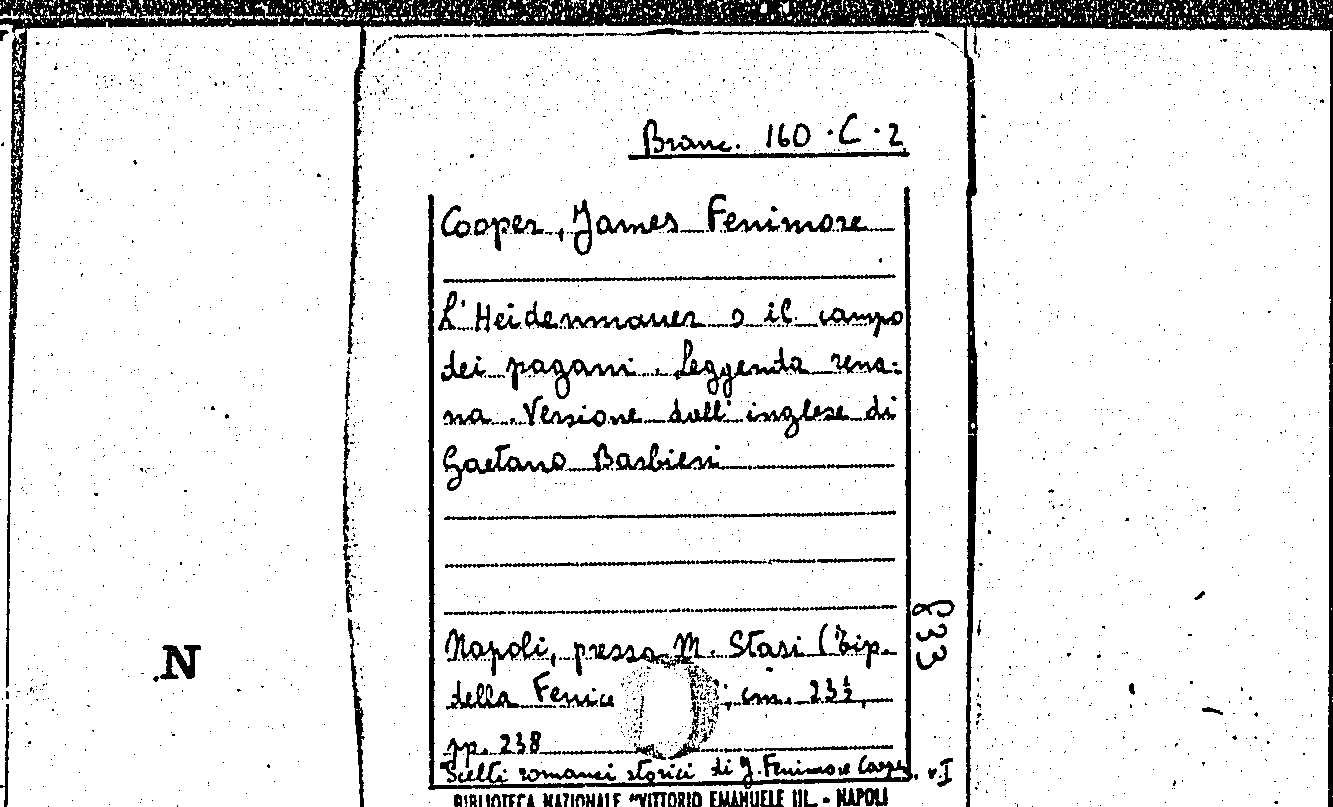 Branc. 160 · C · 2
Cooper, James Fenimore
L'Heidenmauer o il campo
dei pagani. Leggenda rena=
na. Versione dall'inglese di
Gaetano Barbieri
Napoli, presso M. Stasi (Tip.
della Fenice cm. 23½,
pp. 238
"Scelti romanzi storici di J. Fenimore Cooper. v. I
833
N
BIBLIOTECA NAZIONALE "VITTORIO EMANUELE III. - NAPOLI